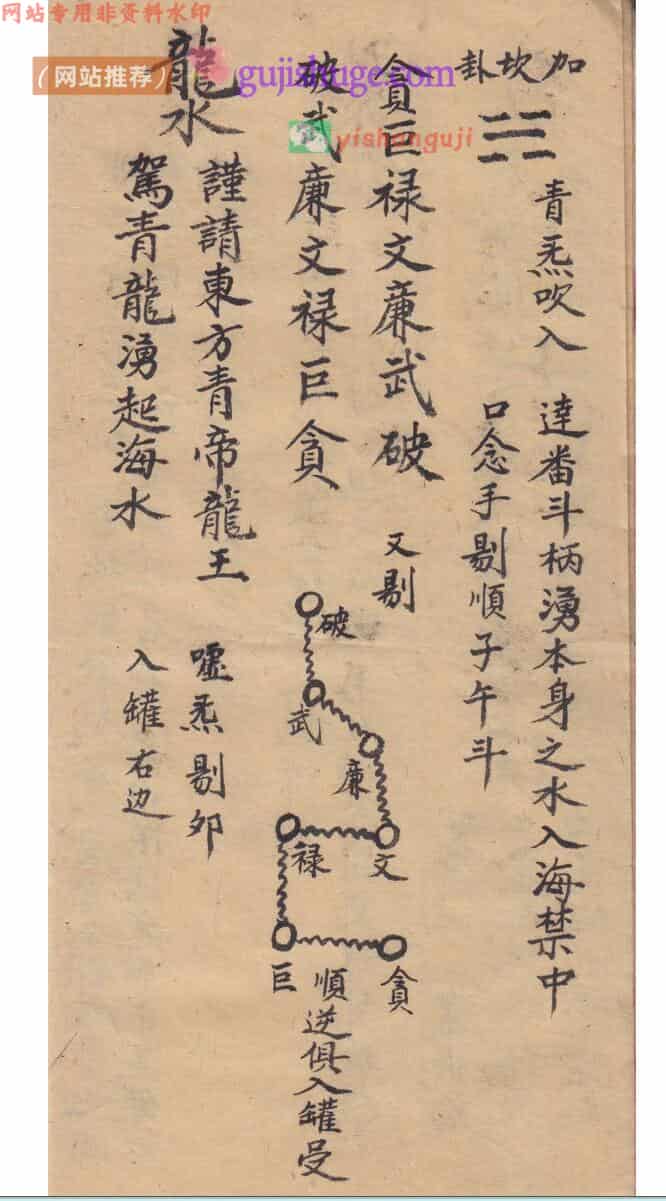 网站专用非资料水印
（网站推荐）
gujishuge.com
yishanguji
加坎卦
青炁吹入
逹番斗柄湧本身之水入海禁中
口念手剔順子午斗
貪巨禄文廉武破
又剔
破武廉文禄巨貪
破
武
廉
文
禄
巨
貪
順逆俱入罐受
龍水
謹請東方青帝龍王
噓炁剔卯
駕青龍湧起海水
入罐右边